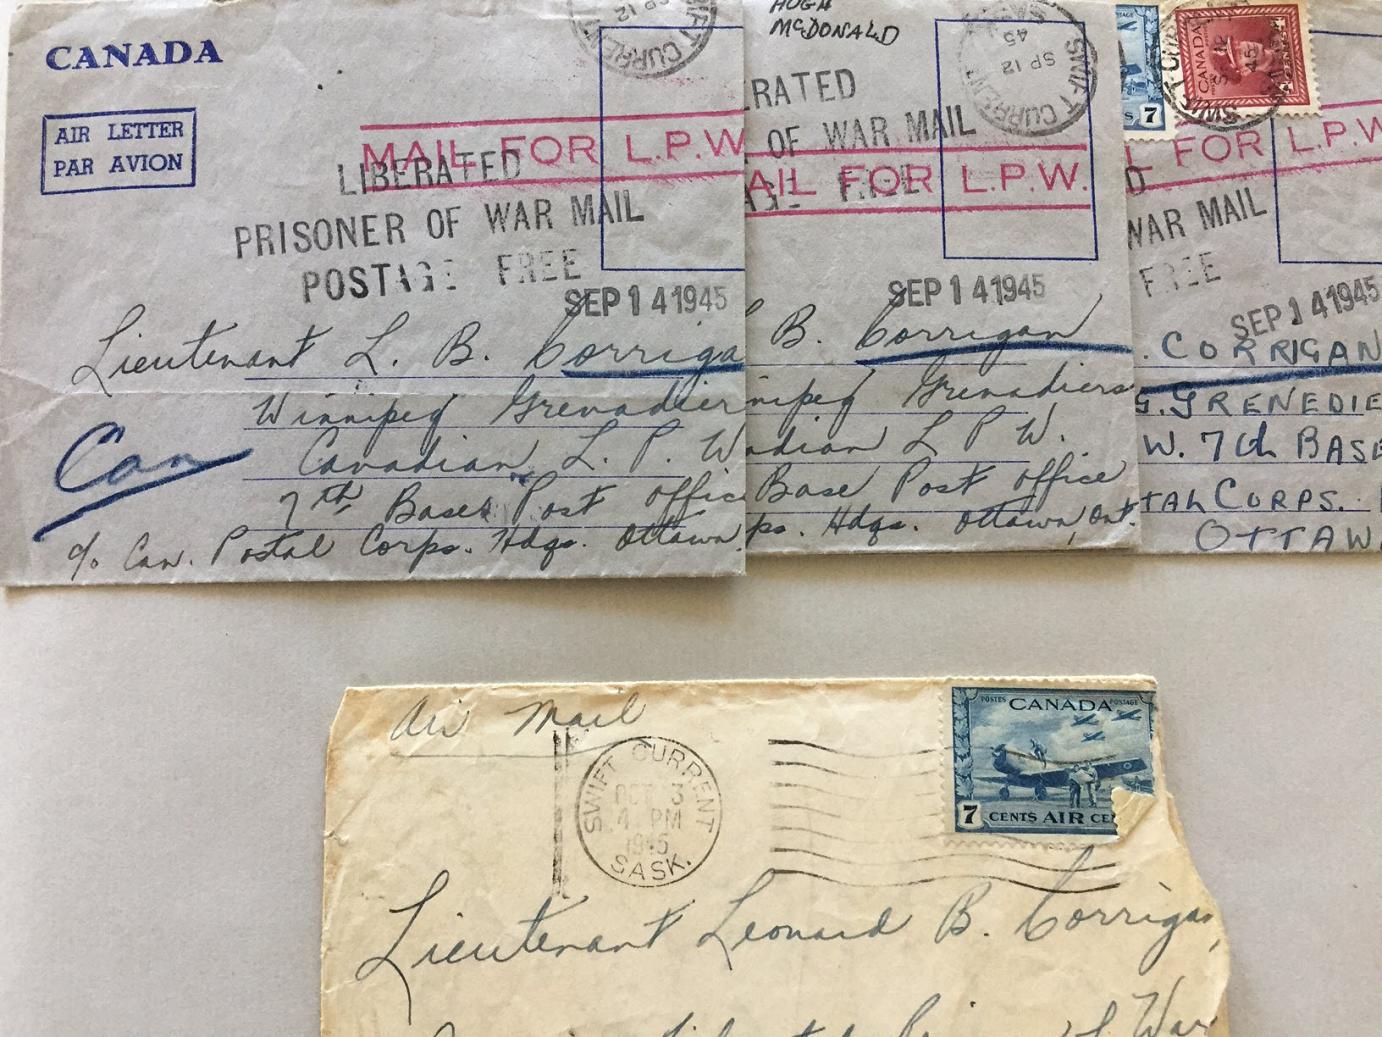 CANADA
AIR LETTER
PAR AVION
SWIFT CURRENT
SP 12
MAIL FOR L.P.W
LIBERATED
PRISONER OF WAR MAIL
POSTAGE FREE
SEP 14 1945
Lieutenant L. B. Corriga
Winnipeg Grenadier
Canadian L. P. W
7th Base Post Office
Can
c/o Can. Postal Corps. Hdqs. Ottawa
HUGH
McDONALD
SWIFT CURRENT
SP 12
45
RATED
OF WAR MAIL
AIL FOR L.P.W.
FREE
SEP 14 1945
B. Corrigan
nipeg Grenadiers
adian L P W.
Base Post Office
ps. Hdqs. Ottawa, Ont.
7
CANADA
SWIFT CUR
45
L FOR L.P.W
D
WAR MAIL
FREE
SEP 14 1945
. CORRIGAN
G. GRENEDIE
W. 7th BASE
TAL CORPS.
OTTAWA
Air Mail
SWIFT CURRENT
OCT 3
4 PM
1945
SASK.
POSTES CANADA POSTAGE
7 CENTS AIR CE
Lieutenant Leonard B. Corrigan,
of War